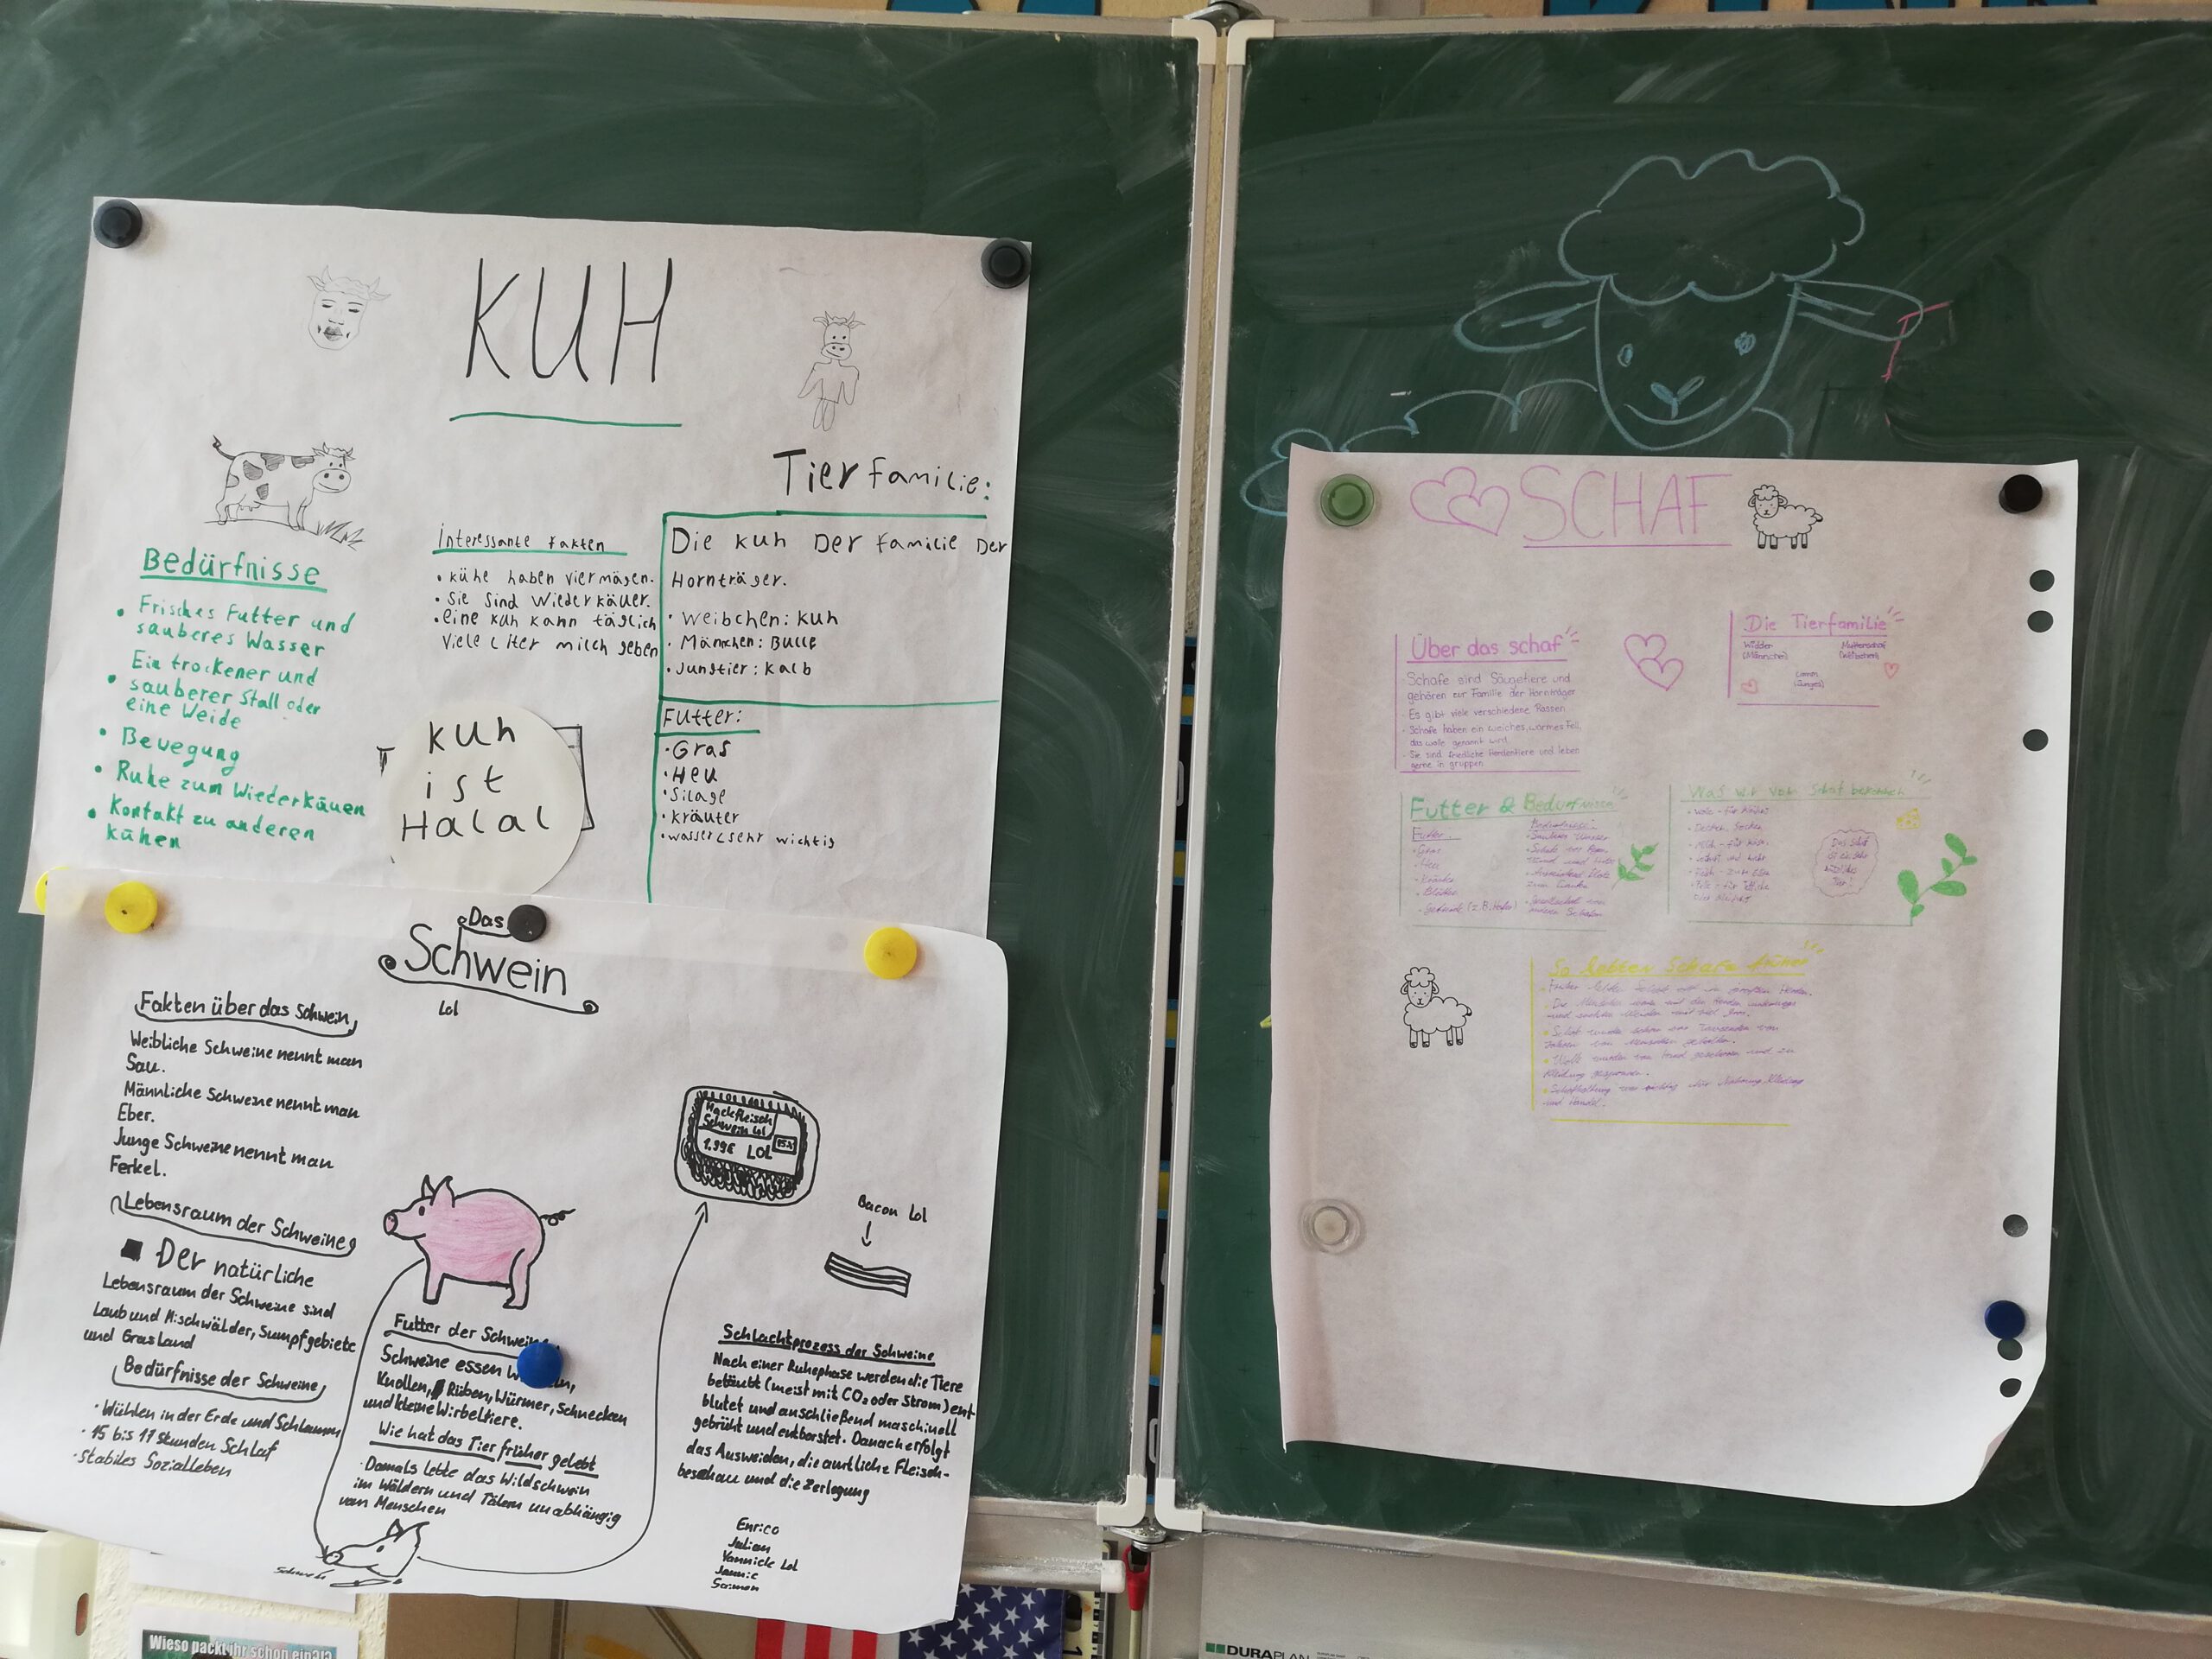 KUH
Bedürfnisse
Frisches Futter und
sauberes Wasser
Ein trockener und
sauberer Stall oder
eine Weide
Bewegung
Ruhe zum Wiederkäuen
Kontakt zu anderen
kühen
Interessante Fakten
• Kühe haben vier mägen.
• Sie Sind Wiederkäuer.
• eine kuh kann täglich
viele liter milch geben
kuh
ist
Halal
Tierfamilie:
Die kuh Der Familie Der
Hornträger.
• Weibchen: kuh
• Männchen: Bulle
• Jungtier: kalb
Futter:
• Gras
• Heu
• Silage
• kräuter
• wasser (sehr wichtig
Das
Schwein
Lol
Fakten über das Schwein
Weibliche Schweine nennt man
Sau.
Männliche Schweine nennt man
Eber.
Junge Schweine nennt man
Ferkel.
Lebensraum der Schweine
Der natürliche
Lebensraum der Schweine sind
Laub und Mischwälder, Sumpfgebiete
und Grasland
Bedürfnisse der Schweine
• Wühlen in der Erde und Schlamm
• 15 bis 17 stunden Schlaf
• stabiles Sozialleben
Futter der Schweine
Schweine essen
Knollen, Rüben, Würmer, Schnecken
und kleine Wirbeltiere.
Wie hat das Tier früher gelebt
• Damals lebte das Wildschwein
im Wäldern und Tälern unabhängig
vom Menschen
Hackfleisch
Schwein lol
1.99€ LOL
Bacon Lol
Schlachtprozess der Schweine
Nach einer Ruhephase werden die Tiere
betäubt (meist mit CO₂ oder Strom) ent
blutet und anschließend maschinell
gebrüht und entborstet. Danach erfolgt
das Ausweiden, die amtliche Fleisch-
beschau und die Zerlegung
Enrico
Julian
Yannick Lol
Jannic
SCHAF
Über das schaf
Schafe sind Säugetiere und
gehören zur Familie der Hornträger
Es gibt viele verschiedene Rassen
Schafe haben ein weiches, warmes Fell,
das wolle genannt wird
Sie sind friedliche Herdentiere und leben
gerne in gruppen
Die Tierfamilie
Widder
(Männchen)
Mutterschaf
(Weibchen)
Lamm
(Junges)
Futter & Bedürfnisse
Futter:
• Gras
• Heu
• Kräuter
• Blätter
• Getreide (z.B. Hafer)
Bedürfnisse:
• Sauberes Wasser
Was wir vom Schaf bekommen
Das Schaf
ist ein sehr
nützliches
Tier!
So lebten Schafe früher
• Wolle wurde von Hand geschoren und zu
Kleidung gesponnen.
• Schafhaltung war wichtig für Nahrung, Kleidung
und Handel.
Wieso packt ihr schon ein?!?
DURAPLAN